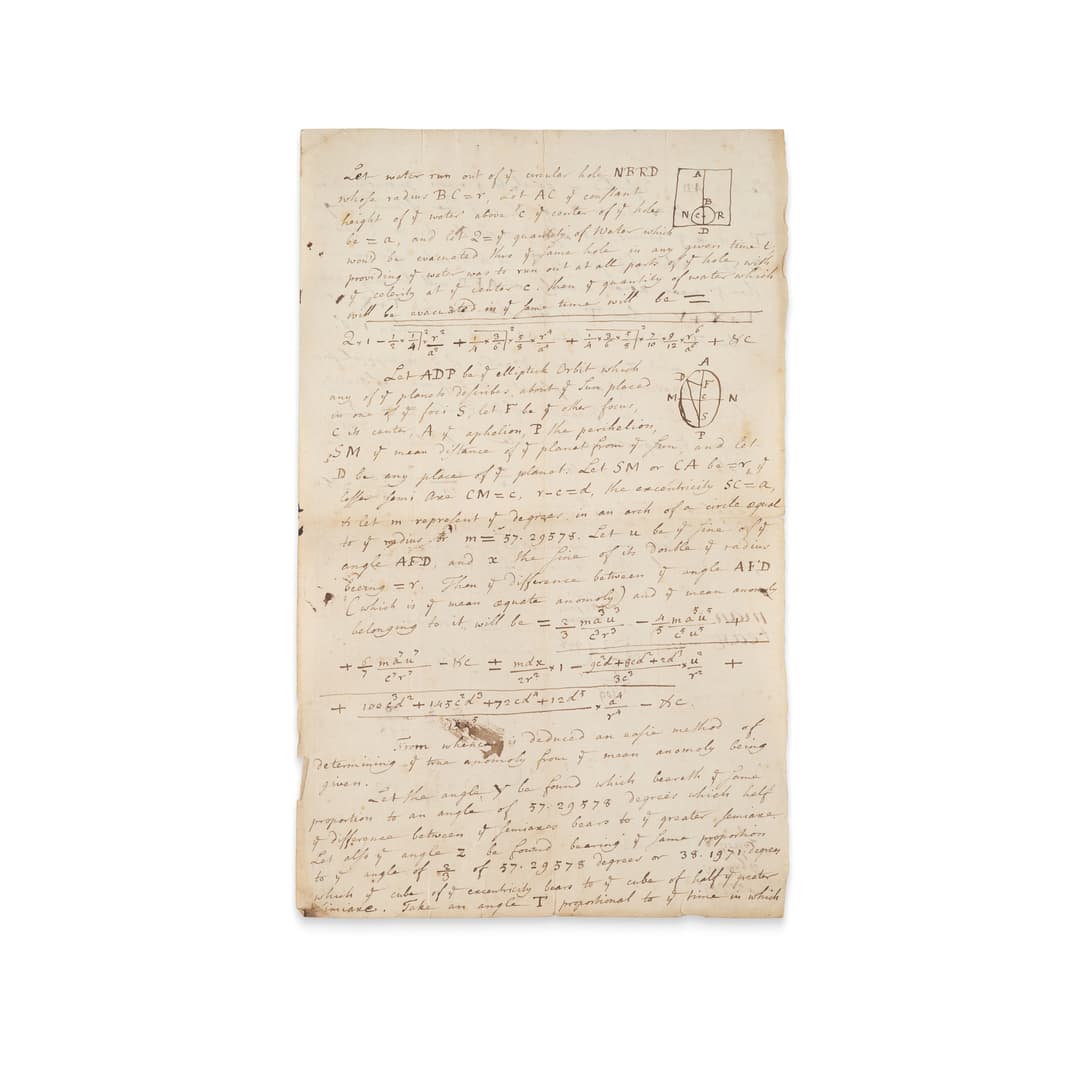 Let water run out of ye circular hole NBRD
whose radius BC=r, Let AC ye constant
height of ye water above C ye center of ye hole
be = a, and let Q=ye quantity of Water which
would be evacuated thro ye same hole in any given time t,
providing ye water was to run out at all parts of ye hole, with
ye celerity at ye center C. then ye quantity of water which
will be evacuated in ye same time will be =
A
B
N C R
D
Q×1 − 1/2×1/4|² r²/a² + 1/4×3/6|²×5/8 r⁴/a⁴ + 1/4×3/6×5/8|²×7/10×9/12× r⁶/a⁶ + &c
Let ADP be ye elliptick Orbit which
any of ye planets describes about ye Sun placed
in one of ye foci S, let F be ye other focus,
C its center, A ye aphelion, P the perihelion,
SM ye mean distance of ye planet from ye sun, and let
D be any place of ye planet. Let SM or CA be =r, ye
lesser semi Axe CM=c, r−c=d, the excentricity SC=a,
& let m represent ye degrees in an arch of a circle equal
to ye radius or m=57.29578. Let u be ye sine of ye
angle AFD, and x the sine of its Double ye radius
beeing =r. Then ye difference between ye angle AFD
(which is ye mean æquate anomoly) and ye mean anomoly
belonging to it, will be = 2/3 ma³u³/c³r³ − 4/5 ma⁵u⁵/c⁵u⁵
A
D F
M C N
S
P
+ 6/7 ma⁷u⁷/c⁷r⁷ − &c ± mdx/2r² × 1 − 9c²d+8cd²+2d³/3c³ × u²/r² +
+ 100c³d²+145c²d³+72cd⁴+12d⁵ × a⁴/r⁴ − &c.
From whence is deduced an easie method of
determining ye true anomoly from ye mean anomoly being
given.
Let the angle Y be found which beareth ye same
proportion to an angle of 57.29578 degrees which half
ye difference between ye semiaxes bears to ye greater semiaxe.
Let also ye angle Z be found bearing ye same proportion
to ye angle of 2/3 of 57.29578 degrees or 38.1971 degrees
which ye cube of ye excentricity bears to ye cube of half ye greater
semiaxe. Take an angle T proportional to ye time in which